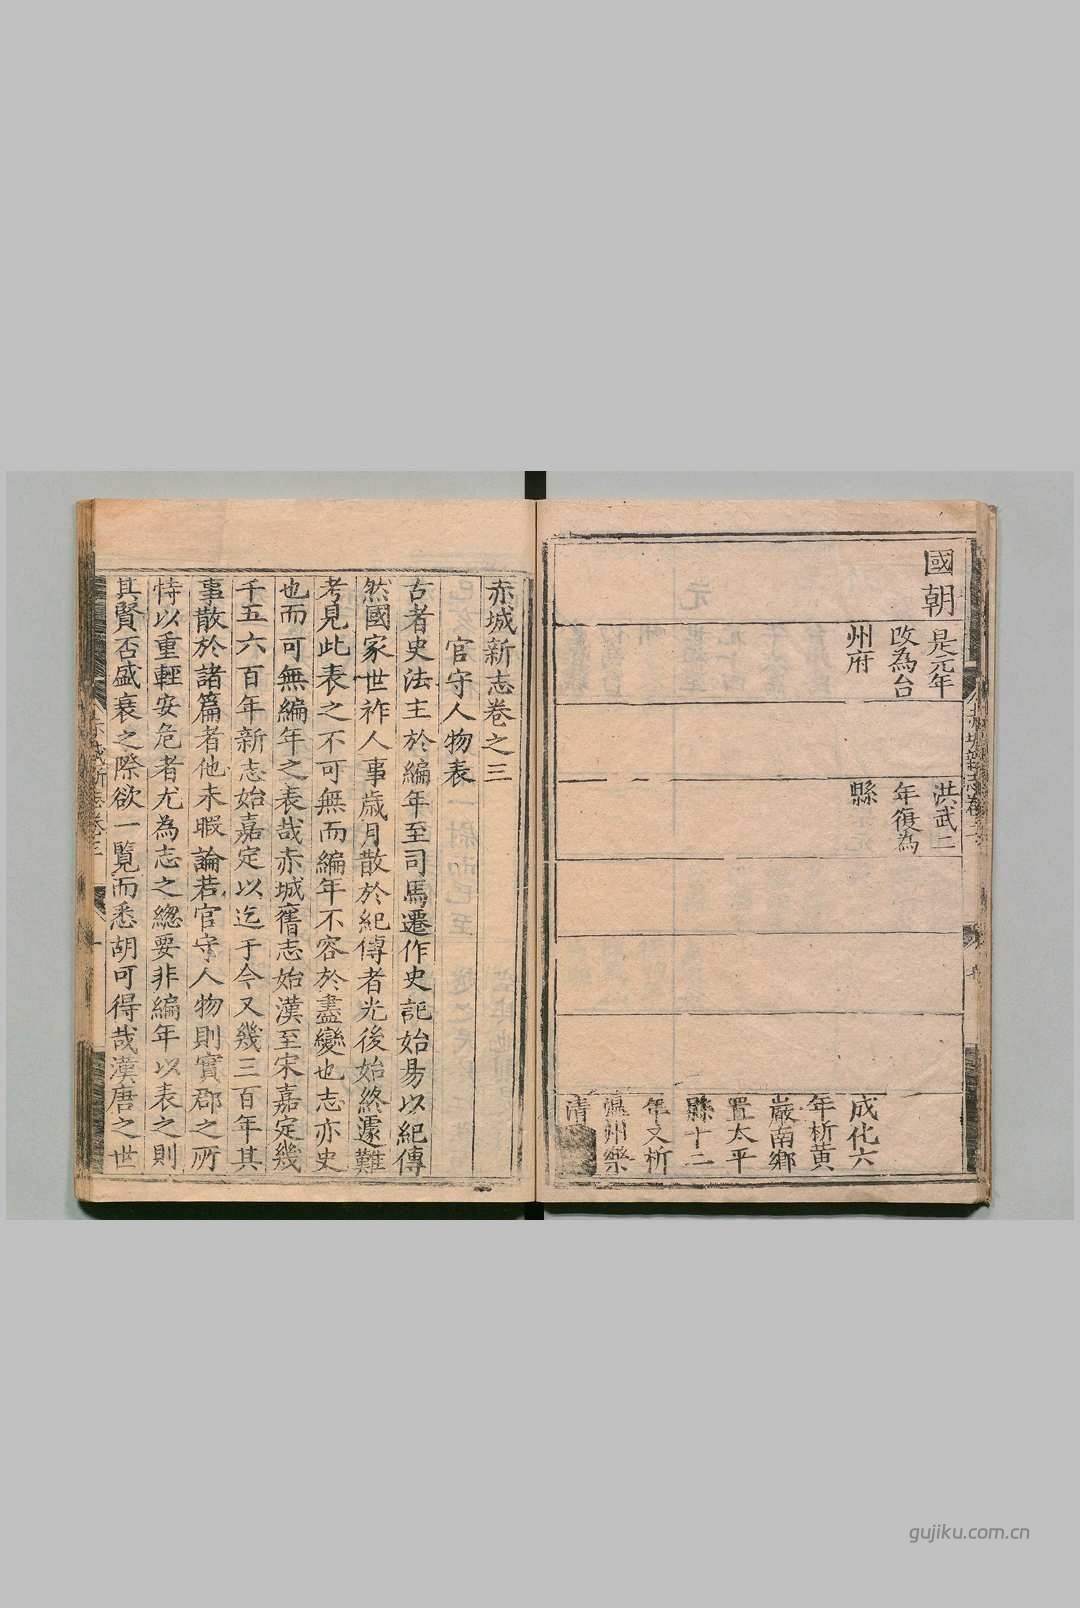 國朝
是元年
改為台
州府
洪武二
年復為
縣
成化六
年析黄
巖南鄉
置太平
縣十二
年又析
温州樂
清
赤城新志卷之三
官守人物表
古者史法主於編年至司馬遷作史記始易以紀傳
然國家世祚人事歲月散於紀傳者先後始終遽難
考見此表之不可無而編年不容於盡變也志亦史
也而可無編年之表哉赤城舊志始漢至宋嘉定幾
千五六百年新志始嘉定以迄于今又幾三百年其
事散於諸篇者他未暇論若官守人物則實郡之所
恃以重輕安危者尤為志之緫要非編年以表之則
其賢否盛衰之際欲一覽而悉胡可得哉漢唐之世
赤城新志卷三
一
gujiku.com.cn